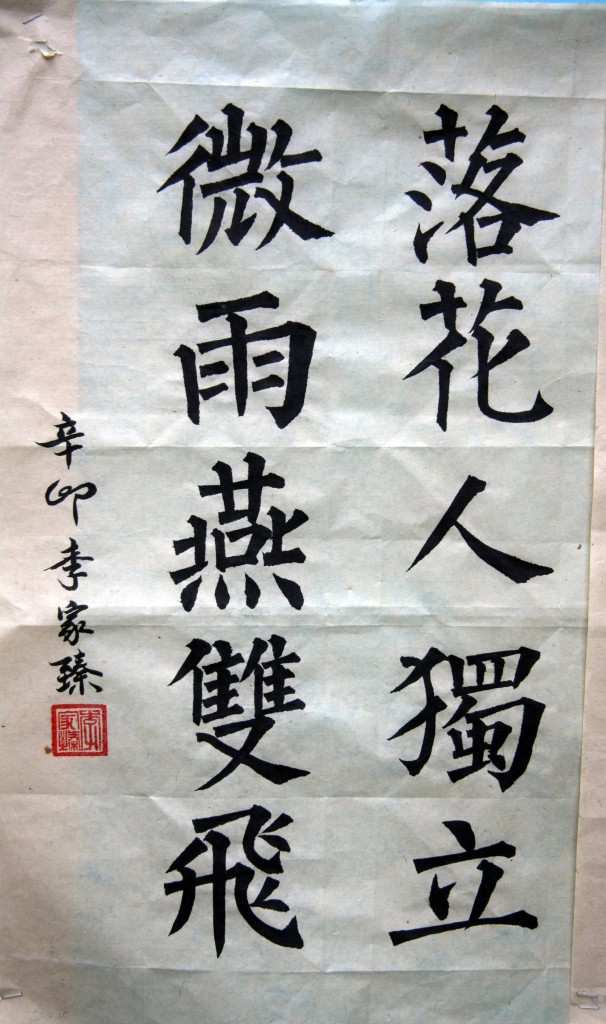 落花人獨立
微雨燕雙飛
辛卯李家臻
李家臻